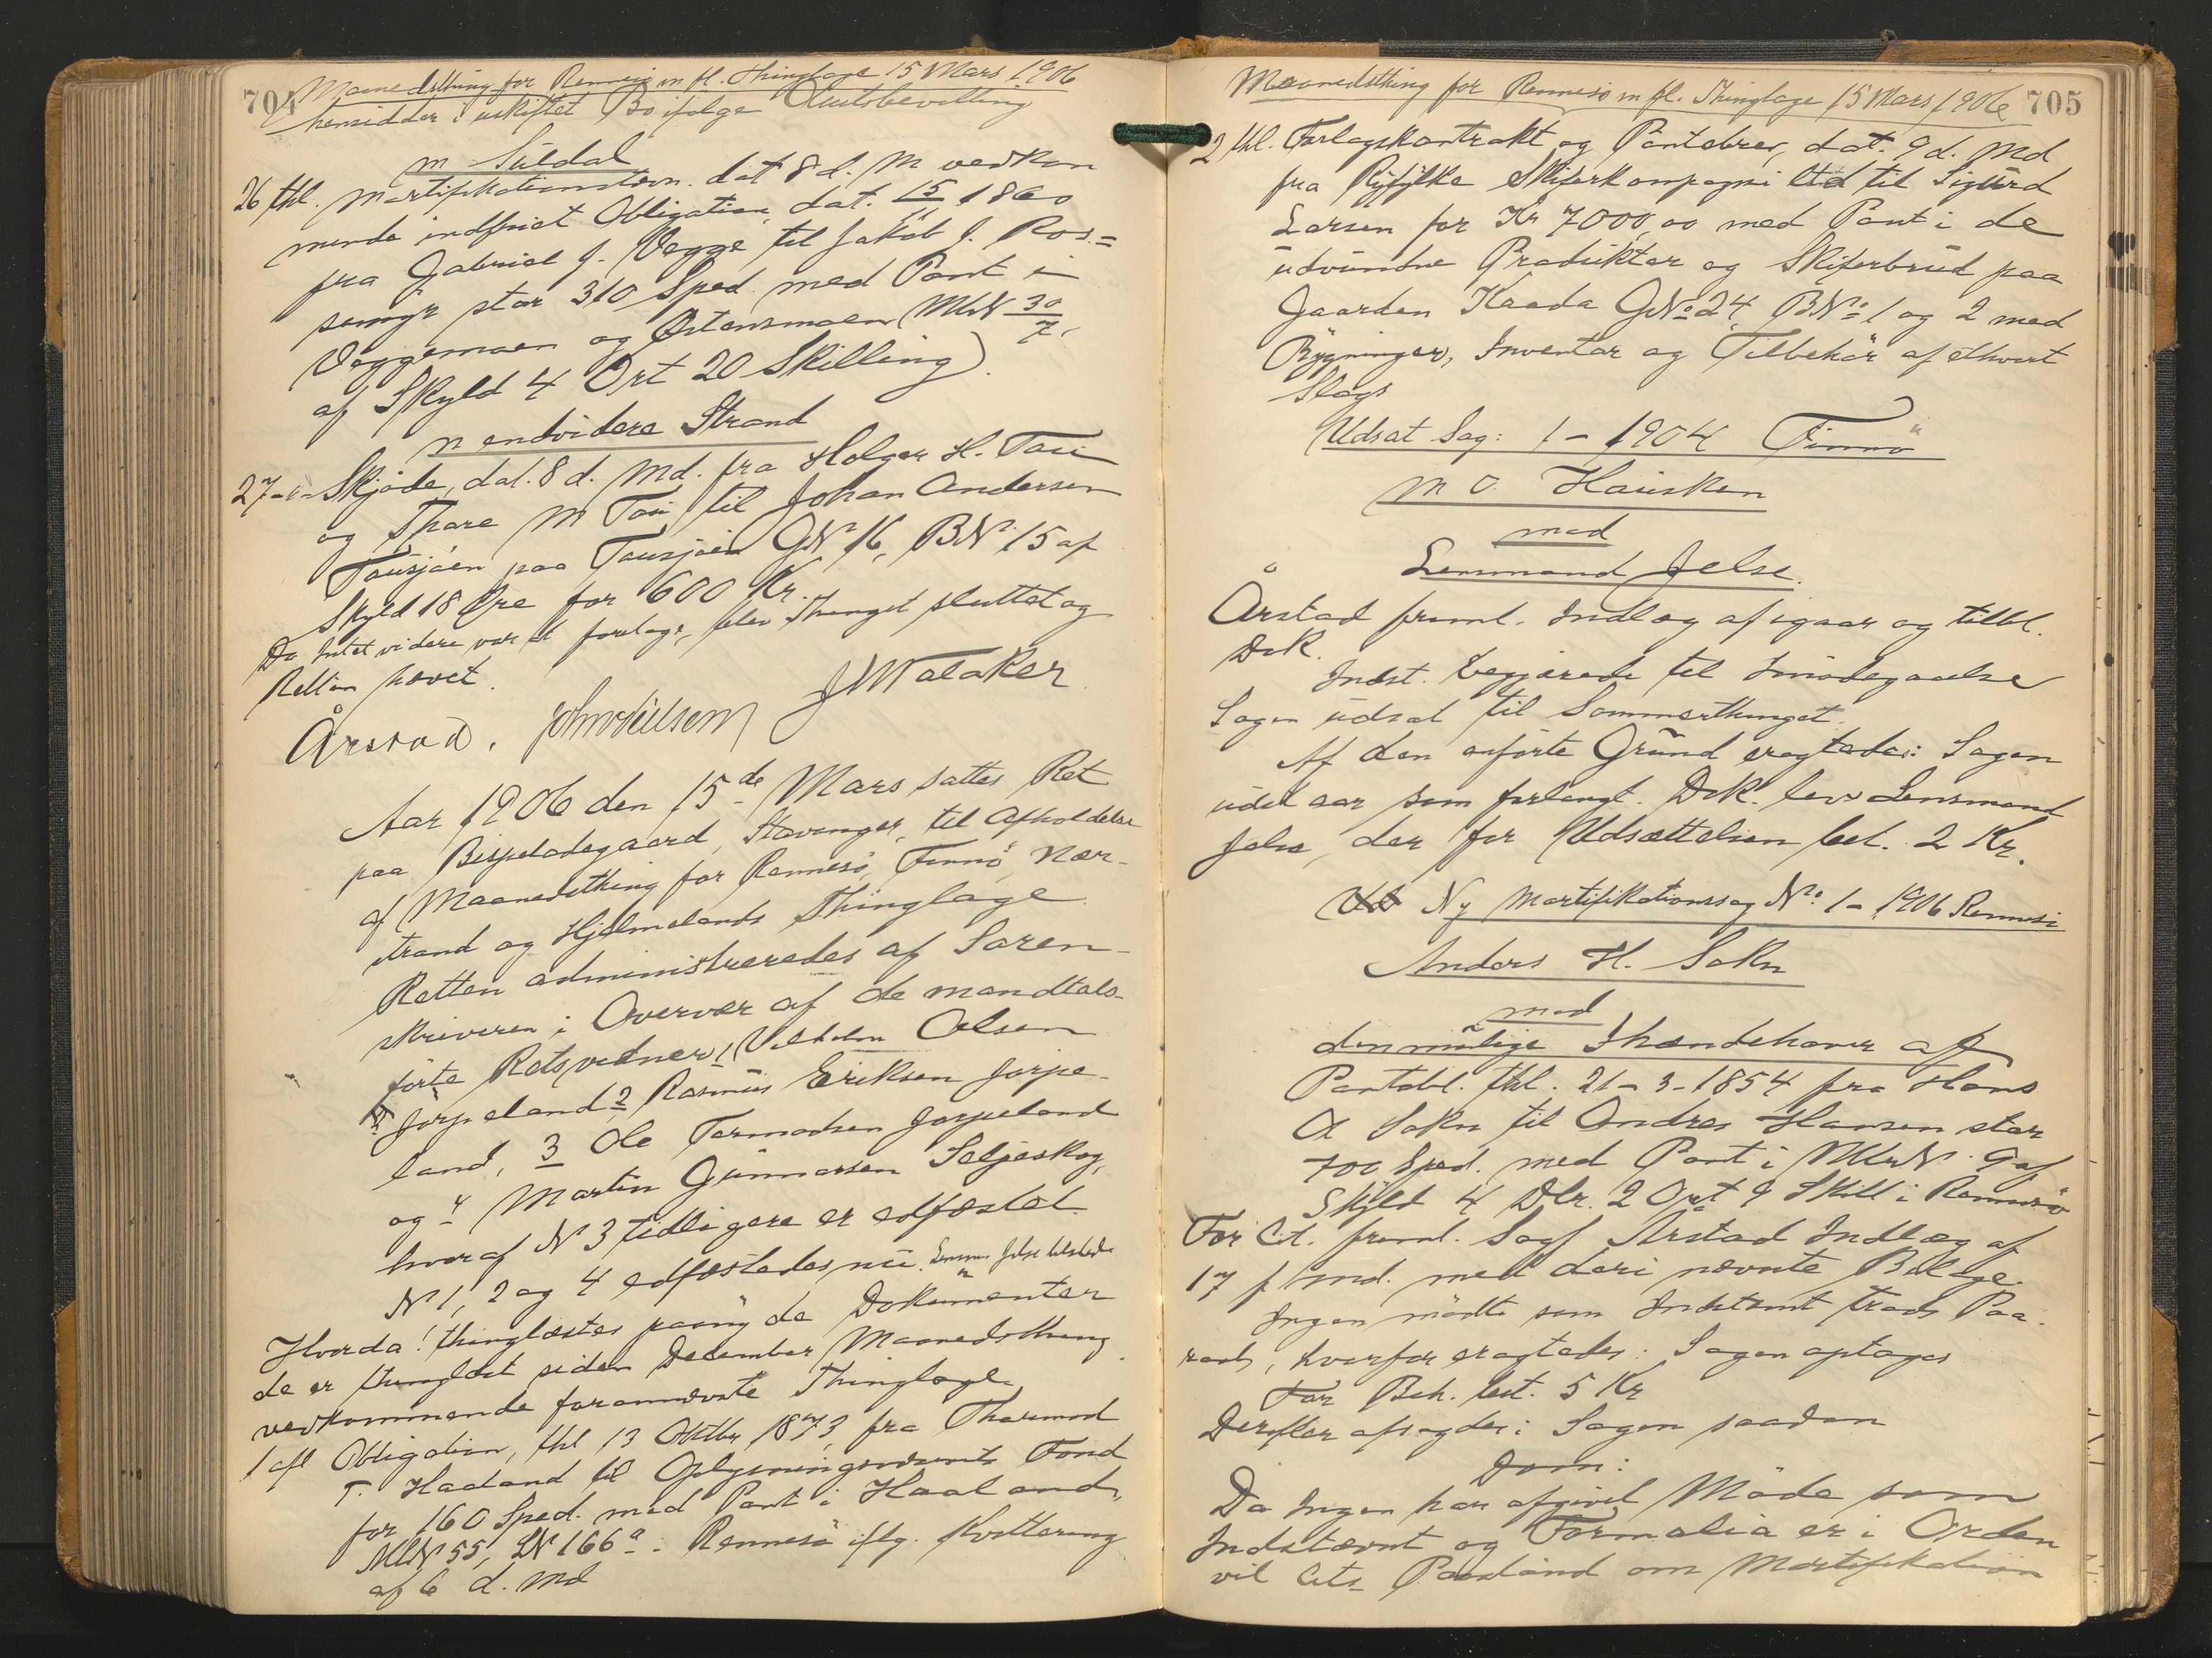 704
Maanedsthing for Rennesö m fl. Thinglage 15 Mars 1906
hensidder i uskiftet Bo ifølge Amtsbevilling
m Suldal
26 thl. Mortifikationsstevn. dat 8 d. M vedkom
mende indfriet Obligation, dat. 15/11 1860
fra Gabriel J. Vegge til Jakob J. Ros=
stor 310 Sped. med Pant i
Veggemoen og Östensmoen MNo 30/7,
af Skyld 4 Ort 20 Skilling).
m endvidere Strand
27 -"- Skjøde, dat. 8 d. Md. fra Holger H. Tau
og Thore M Tau til Johan Andersen
Tausjøen paa Tausjøen GNo 16, BNo 15 af
Skyld 18 Øre for 600 Kr.
Da Intet videre var at foretage, blev Thinget sluttet og
Retten hævet.
Årstad. John Nilsen J M Talaker
Aar 1906 den 15de Mars sattes Ret
paa Bispeladegaard, Stavanger, til Afholdelse
af Maanedsthing for Rennesö, Finnö, Nær-
strand og Hjelmelands Thinglage.
Retten administreredes af Soren-
skriveren i Overvær af de mandtals-
førte Retsvidner, 1 Vilhelm Olsen
Jørpeland 2 Rasmus Eriksen Jørpe-
land, 3 Ole Tormodsen Jørpeland
og 4 Martin Gunnarsen Seljeskog,
hvoraf No 3 tidligere er edfæstet.
No 1, 2 og 4 edfæstedes nu. Lensm. Jelse tilstede
Hvorda! thinglæstes paany de Dokumenter
de er thinglæst siden December Maanedsthing
vedkommende forannævnte Thinglage
1 afl Obligation, thl 13 Oktbr 1873, fra Thormod
T. Haaland til Oplysningsvæsenets Fond
for 160 Sped. med Pant i Haaland,
MNo 55, LNo 166a i Rennesö iflg. Kvittering
af 6 d. Md
705
Maanedsthing for Rennesö m fl. Thinglage 15 Mars 1906
2 thl. Forlagskontrakt og Pantebrev, dat. 9 d. Md
fra Ryfylke Skiferkompagni Ltd til Sigurd
Larsen for Kr 7000,00 med Pant i de
udvundne Produkter og Skiferbrud paa
Gaarden Kaada GNo 24, BNo 1 og 2 med
Bygninger, Inventar og Tilbehör af ethvert
Slags
Udsat Sag: 1 - 1904 Finnö
M O. Hausken
mod
Lensmand Jelse.
Årstad freml. Indlæg af igaar og tilbl.
Dok.
Indst. begjærede til Imödegaaelse
Sagen udsat til Sommerthinget.
Af den anførte Grund eragtedes: Sagen
udstaar som forlangt. Dok. lev. Lensmand
Jelse, der for Udsættelsen bet. 2 Kr.
Ny Mortifikationssag No 1 - 1906 Rennesö
Anders H. Sokn
mod
den mulige Ihændehaver af
Pantobl. thl. 21 - 3 - 1854 fra Hans
A Sokn til Andres Hansen stor
700 Sped. med Pant i MNo 9 af
Skyld 4 Dlr. 2 Ort 9 Skill i Rennesö
For Cit. freml. Sagf Årstad Indlæg af
17 f md. med deri nævnte Bilage.
Ingen mödte som Indstevnt trods Paa-
raab, hvorfor eragtedes: Sagen optages
For Beh. bet. 5 Kr
Derefter afsagdes i Sagen saadan
Dom:
Da Ingen har afgivet Möde som
Indstævnt og Formalia er i Orden
vil Cits Paastand om Mortifikation